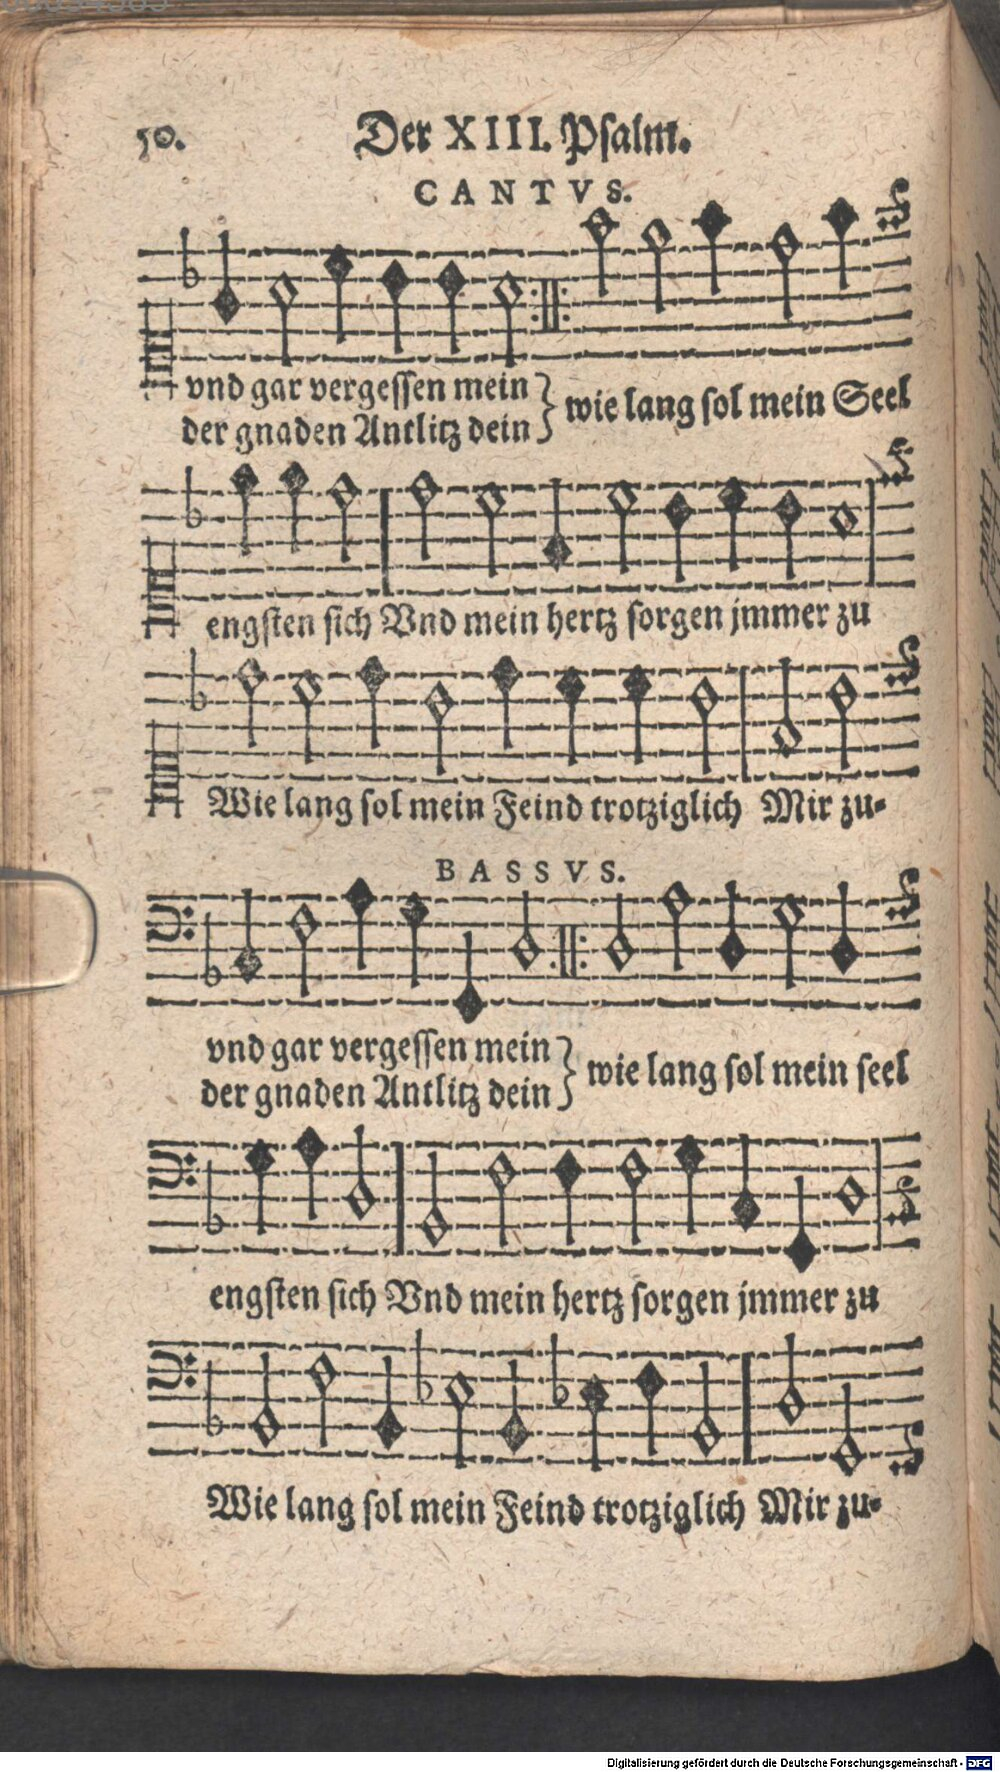 50.
Der XIII. Psalm.
CANTVS.
vnd gar vergessen mein
der gnaden Antlitz dein
wie lang sol mein Seel
engsten sich Vnd mein hertz sorgen jmmer zu
Wie lang sol mein Feind trotziglich Mir zu-
BASSVS.
vnd gar vergessen mein
der gnaden Antlitz dein
wie lang sol mein seel
engsten sich Vnd mein hertz sorgen jmmer zu
Wie lang sol mein Feind trotziglich Mir zu-
Digitalisierung gefördert durch die Deutsche Forschungsgemeinschaft - DFG